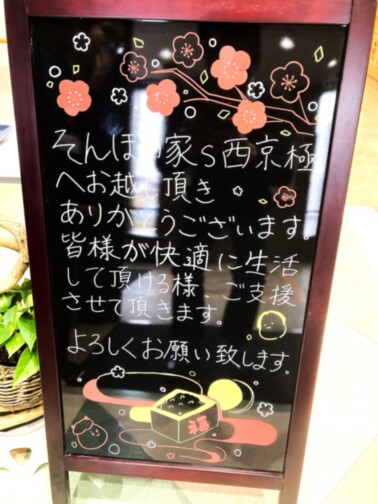 そんぽの家S西京極
へお越し頂き
ありがとうございます。
皆様が快適に生活
して頂ける様、ご支援
させて頂きます。
よろしくお願い致します。
福